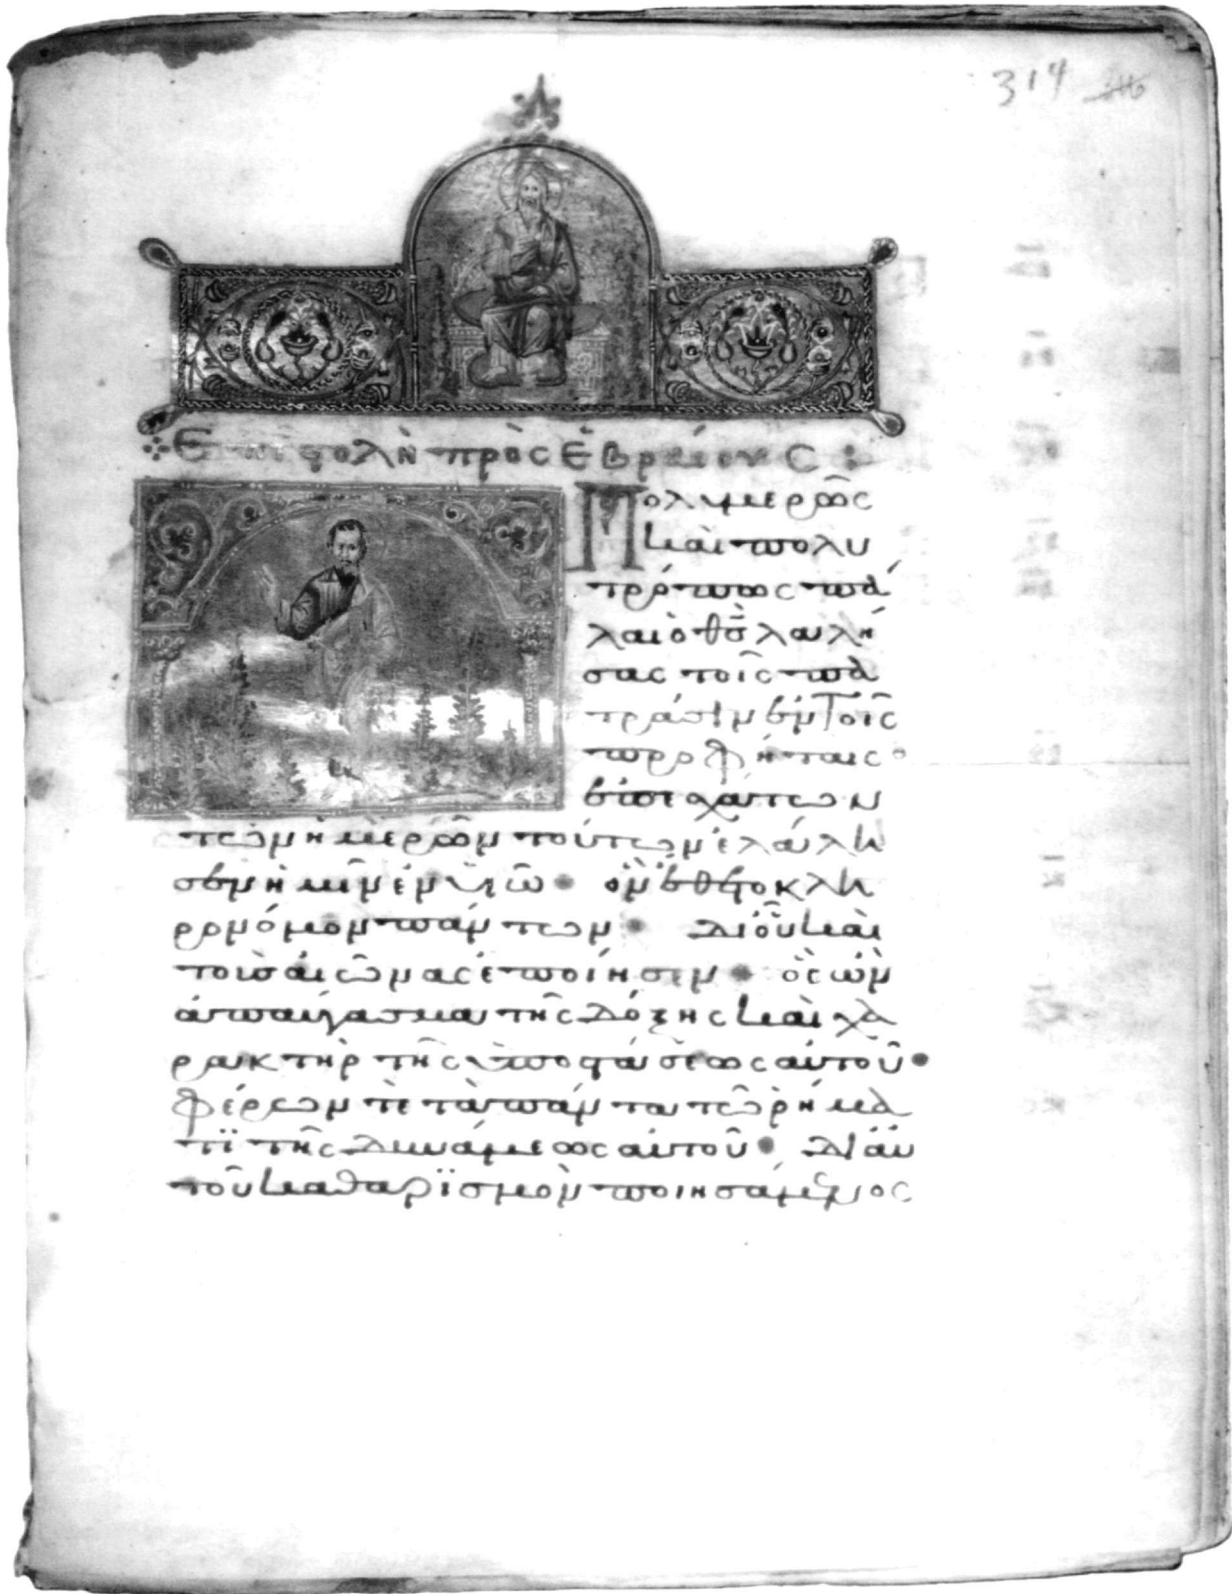 314 316
Ἐπιστολὴ πρὸς Ἑβραίους
Πολυμερῶς
καὶ πολυ
τρόπως πά
λαι ὁ θς λαλή
σας τοῖς πα
τράσιν ἐν τοῖς
προφήταις
ἐπ ἐσχάτων
τῶν ἡμερῶν τούτων ἐλάλη
σεν ἡμῖν ἐν υἱῶ · ὃν ἔθετο κλη
ρονόμον πάντων · δι οὗ καὶ
τοὺς αἰῶνας ἐποίησεν · ὃς ὢν
ἀπαύγασμα τῆς δόξης καὶ χα
ρακτὴρ τῆς ὑποστάσεως αὐτοῦ ·
φέρων τε τὰ πάντα τῶ ῥήμα
τϊ τῆς δυνάμεως αὐτοῦ · δι ἁυ
τοῦ καθαρϊσμὸν ποιησάμενος